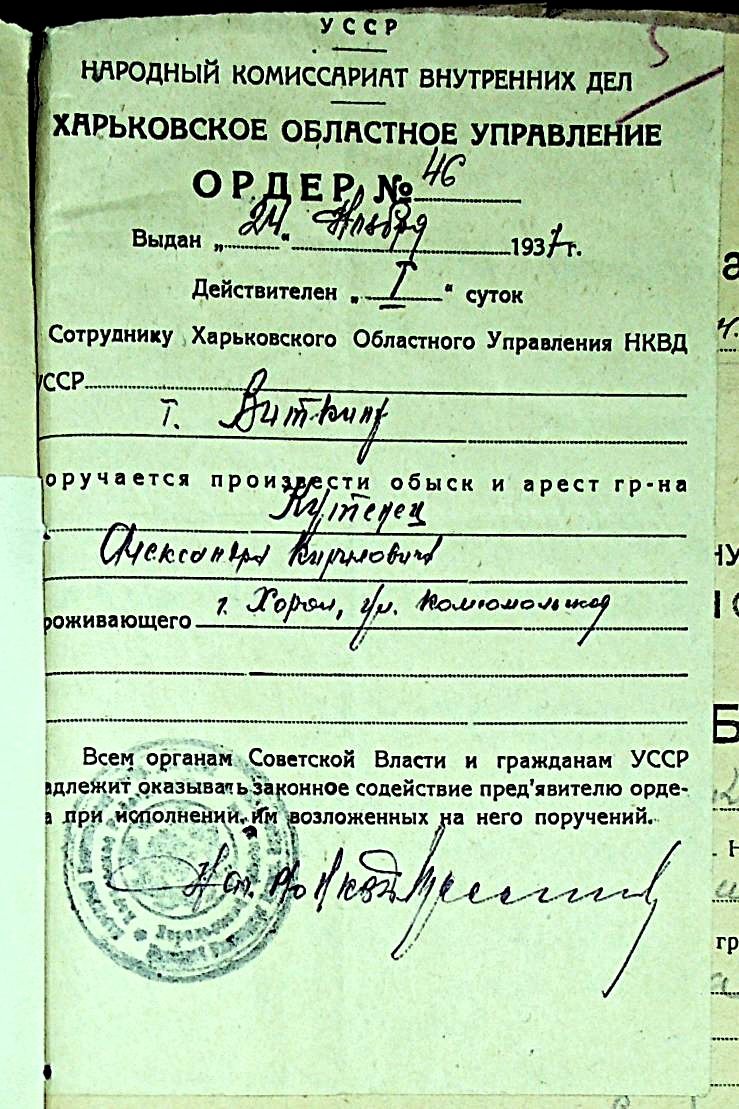 УССР
НАРОДНЫЙ КОМИССАРИАТ ВНУТРЕННИХ ДЕЛ
ХАРЬКОВСКОЕ ОБЛАСТНОЕ УПРАВЛЕНИЕ
ОРДЕР № 46
Выдан „24“ Ноября 1937 г.
Действителен „I“ суток
Сотруднику Харьковского Областного Управления НКВД
УССР
т. Виткину
оручается произвести обыск и арест гр-на
Кутепец
Александра Кирилович
роживающего г. Хорол, ул. Комсомольская
Всем органам Советской Власти и гражданам УССР
адлежит оказывать законное содействие пред'явителю орде-
а при исполнении им возложенных на него поручений.
Нач. РО НКВД